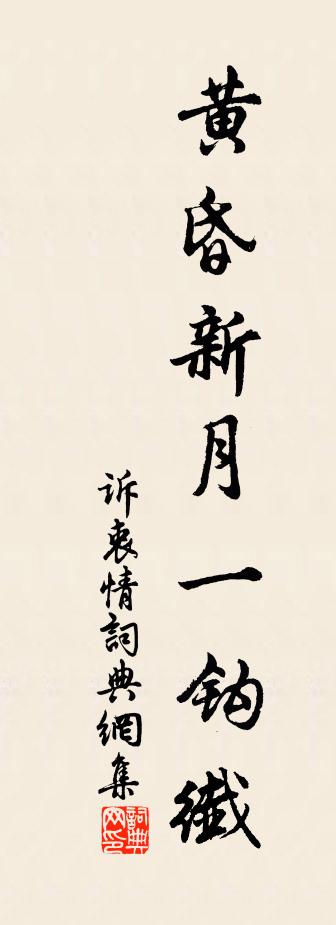 黄昏新月一鈎纖
訴衷情詞典網集
詞典网印